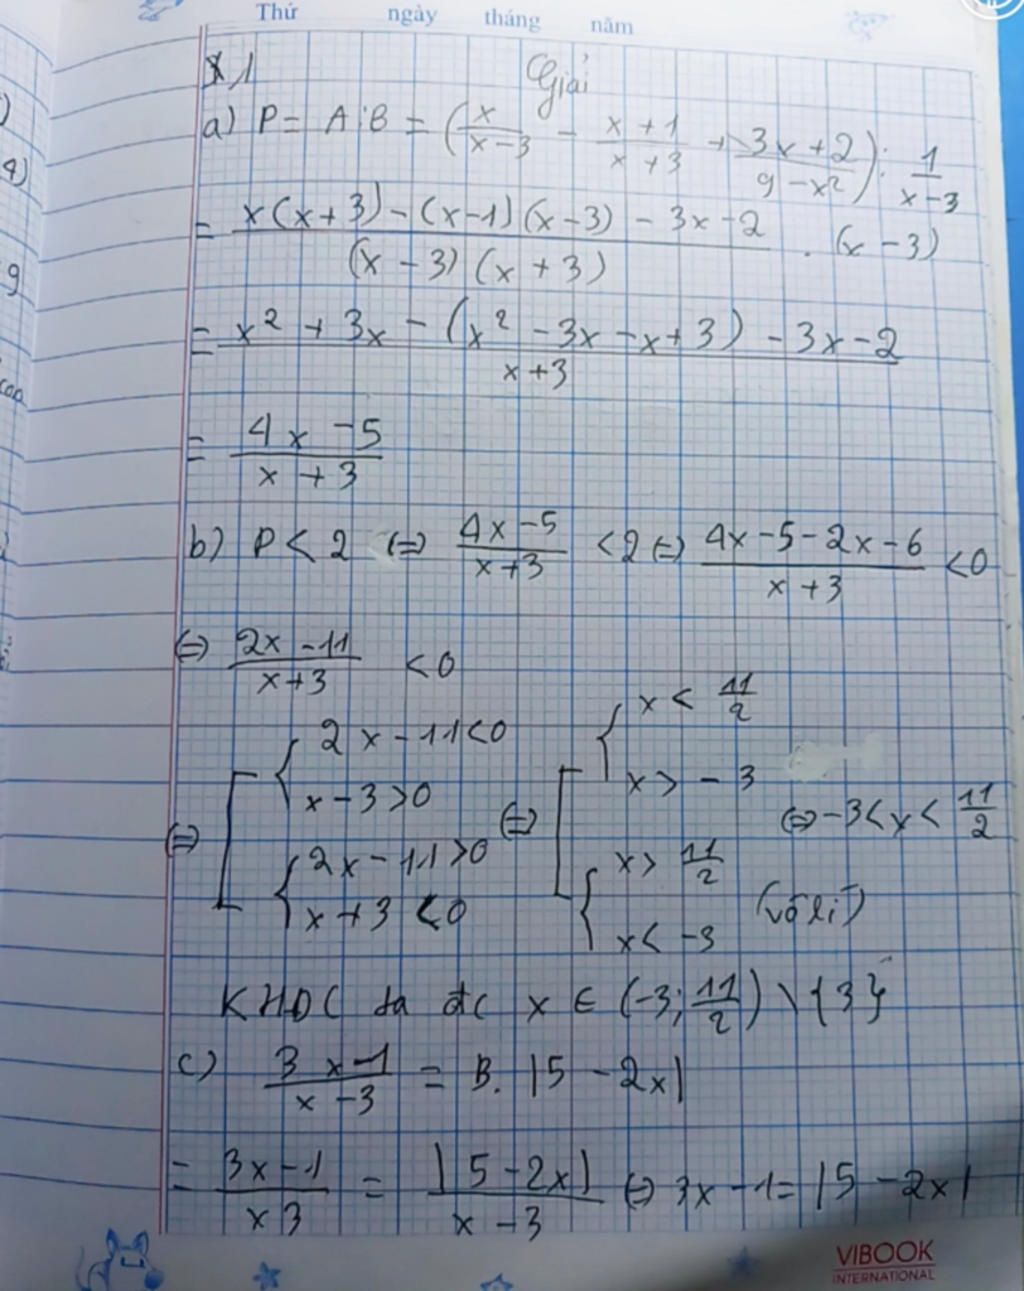 Thứ ngày tháng năm
1 Giải
a) P = A : B = (x/(x-3) - (x+1)/(x+3) + (3x+2)/(9-x²)) : 1/(x-3)
= (x(x+3) - (x-1)(x-3) - 3x-2)/((x-3)(x+3)) . (x-3)
= (x² + 3x - (x² - 3x - x + 3) - 3x - 2)/(x+3)
= (4x - 5)/(x + 3)
b) P < 2 (=) (4x-5)/(x+3) < 2 (=) (4x-5-2x-6)/(x+3) < 0
(=) (2x-11)/(x+3) < 0
(=) [ { 2x-11<0 ; x-3>0 ; { 2x-11>0 ; x+3<0 (=) [ { x < 11/2 ; x > -3 ; { x > 11/2 ; x < -3 (vô lí) (=) -3 < x < 11/2
KHDC ta đc x ∈ (-3; 11/2) \ {3}
c) (3x-1)/(x-3) = B. |5 - 2x|
= (3x-1)/(x 3) = |5-2x|/(x-3) (=) 3x-1 = |5-2x|
VIBOOK
INTERNATIONAL